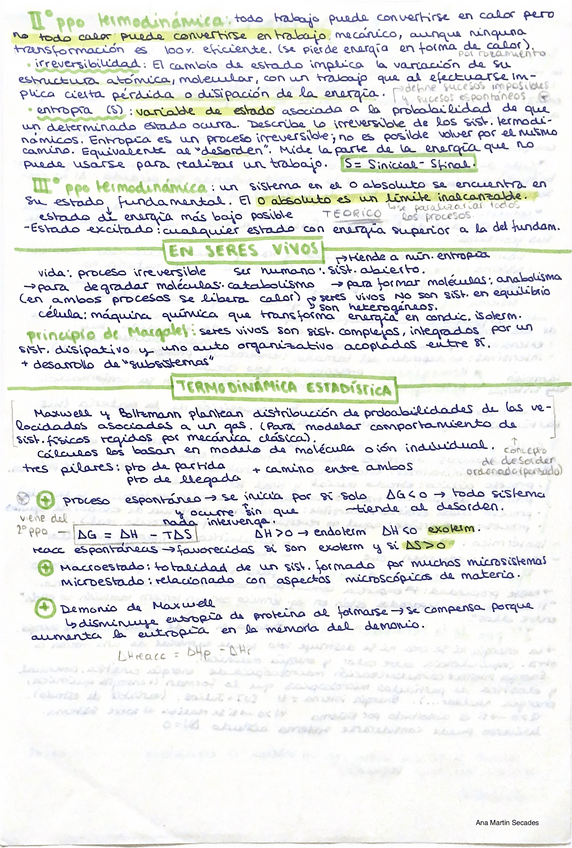 IIº ppo termodinámica: todo trabajo puede convertirse en calor pero
no todo calor puede convertirse en trabajo mecánico, aunque ninguna
transformación es 100% eficiente. (se pierde energía en forma de calor).
por rozamiento
· irreversibilidad: El cambio de estado implica la variación de su
estructura atómica, molecular, con un trabajo que al efectuarse im-
plica cierta pérdida o disipación de la energía.
→define sucesos imposibles
y sucesos espontáneos
· entropía (S): variable de estado asociada a la probabilidad de que
un determinado estado ocurra. Describe lo irreversible de los sist. termodi-
námicos. Entropía es un proceso irreversible; no es posible volver por el mismo
camino. Equivalente al "desorden". Mide la parte de la energía que no
puede usarse para realizar un trabajo. S = Sinicial - Sfinal.
IIIº ppo termodinámica: un sistema en el 0 absoluto se encuentra en
su estado fundamental. El 0 absoluto es un límite inalcanzable.
estado de energía más bajo posible TEÓRICO se paralizarían todos
los procesos.
-Estado excitado: cualquier estado con energía superior a la del fundam.
EN SERES VIVOS →tiende a min. entropía
vida: proceso irreversible ser humano: sist. abierto.
→para degradar moléculas: catabolismo →para formar moléculas: anabolismo
(en ambos procesos se libera calor) seres vivos NO son sist. en equilibrio
son heterogéneos.
célula: máquina química que transforma energía en condic. isoterm.
principio de Margalef: seres vivos son sist. complejos, integrados por un
sist. disipativo y uno auto organizativo acoplados entre sí.
+ desarrollo de "subsistemas"
TERMODINÁMICA ESTADÍSTICA
Maxwell y Boltzmann plantean distribución de probabilidades de las ve-
locidades asociadas a un gas. (Para modelar comportamiento de
sist. físicos regidos por mecánica clásica).
cálculos los basan en modelo de molécula o ión individual.
concepto
de desorden
tres pilares: pto de partida + camino entre ambos
pto de llegada
+ proceso espontáneo → se inicia por si solo ΔG<0 → todo sistema
y ocurre sin que →tiende al desorden.
nada intervenga.
viene del
2º ppo
ΔG = ΔH - TΔS ΔH>0 → endoterm ΔH<0 exoterm.
reacc espontáneas → favorecidas si son exoterm y si ΔS>0
+ Macroestado: totalidad de un sist. formado por muchos microsistemas
microestado: relacionado con aspectos microscópicos de materia.
+ Demonio de Maxwell
↳disminuye entropía de proteína al formarse → se compensa porque
aumenta la entropía en la memoria del demonio.
ΔHreacc = ΔHp - ΔHr
Ana Martín Secades